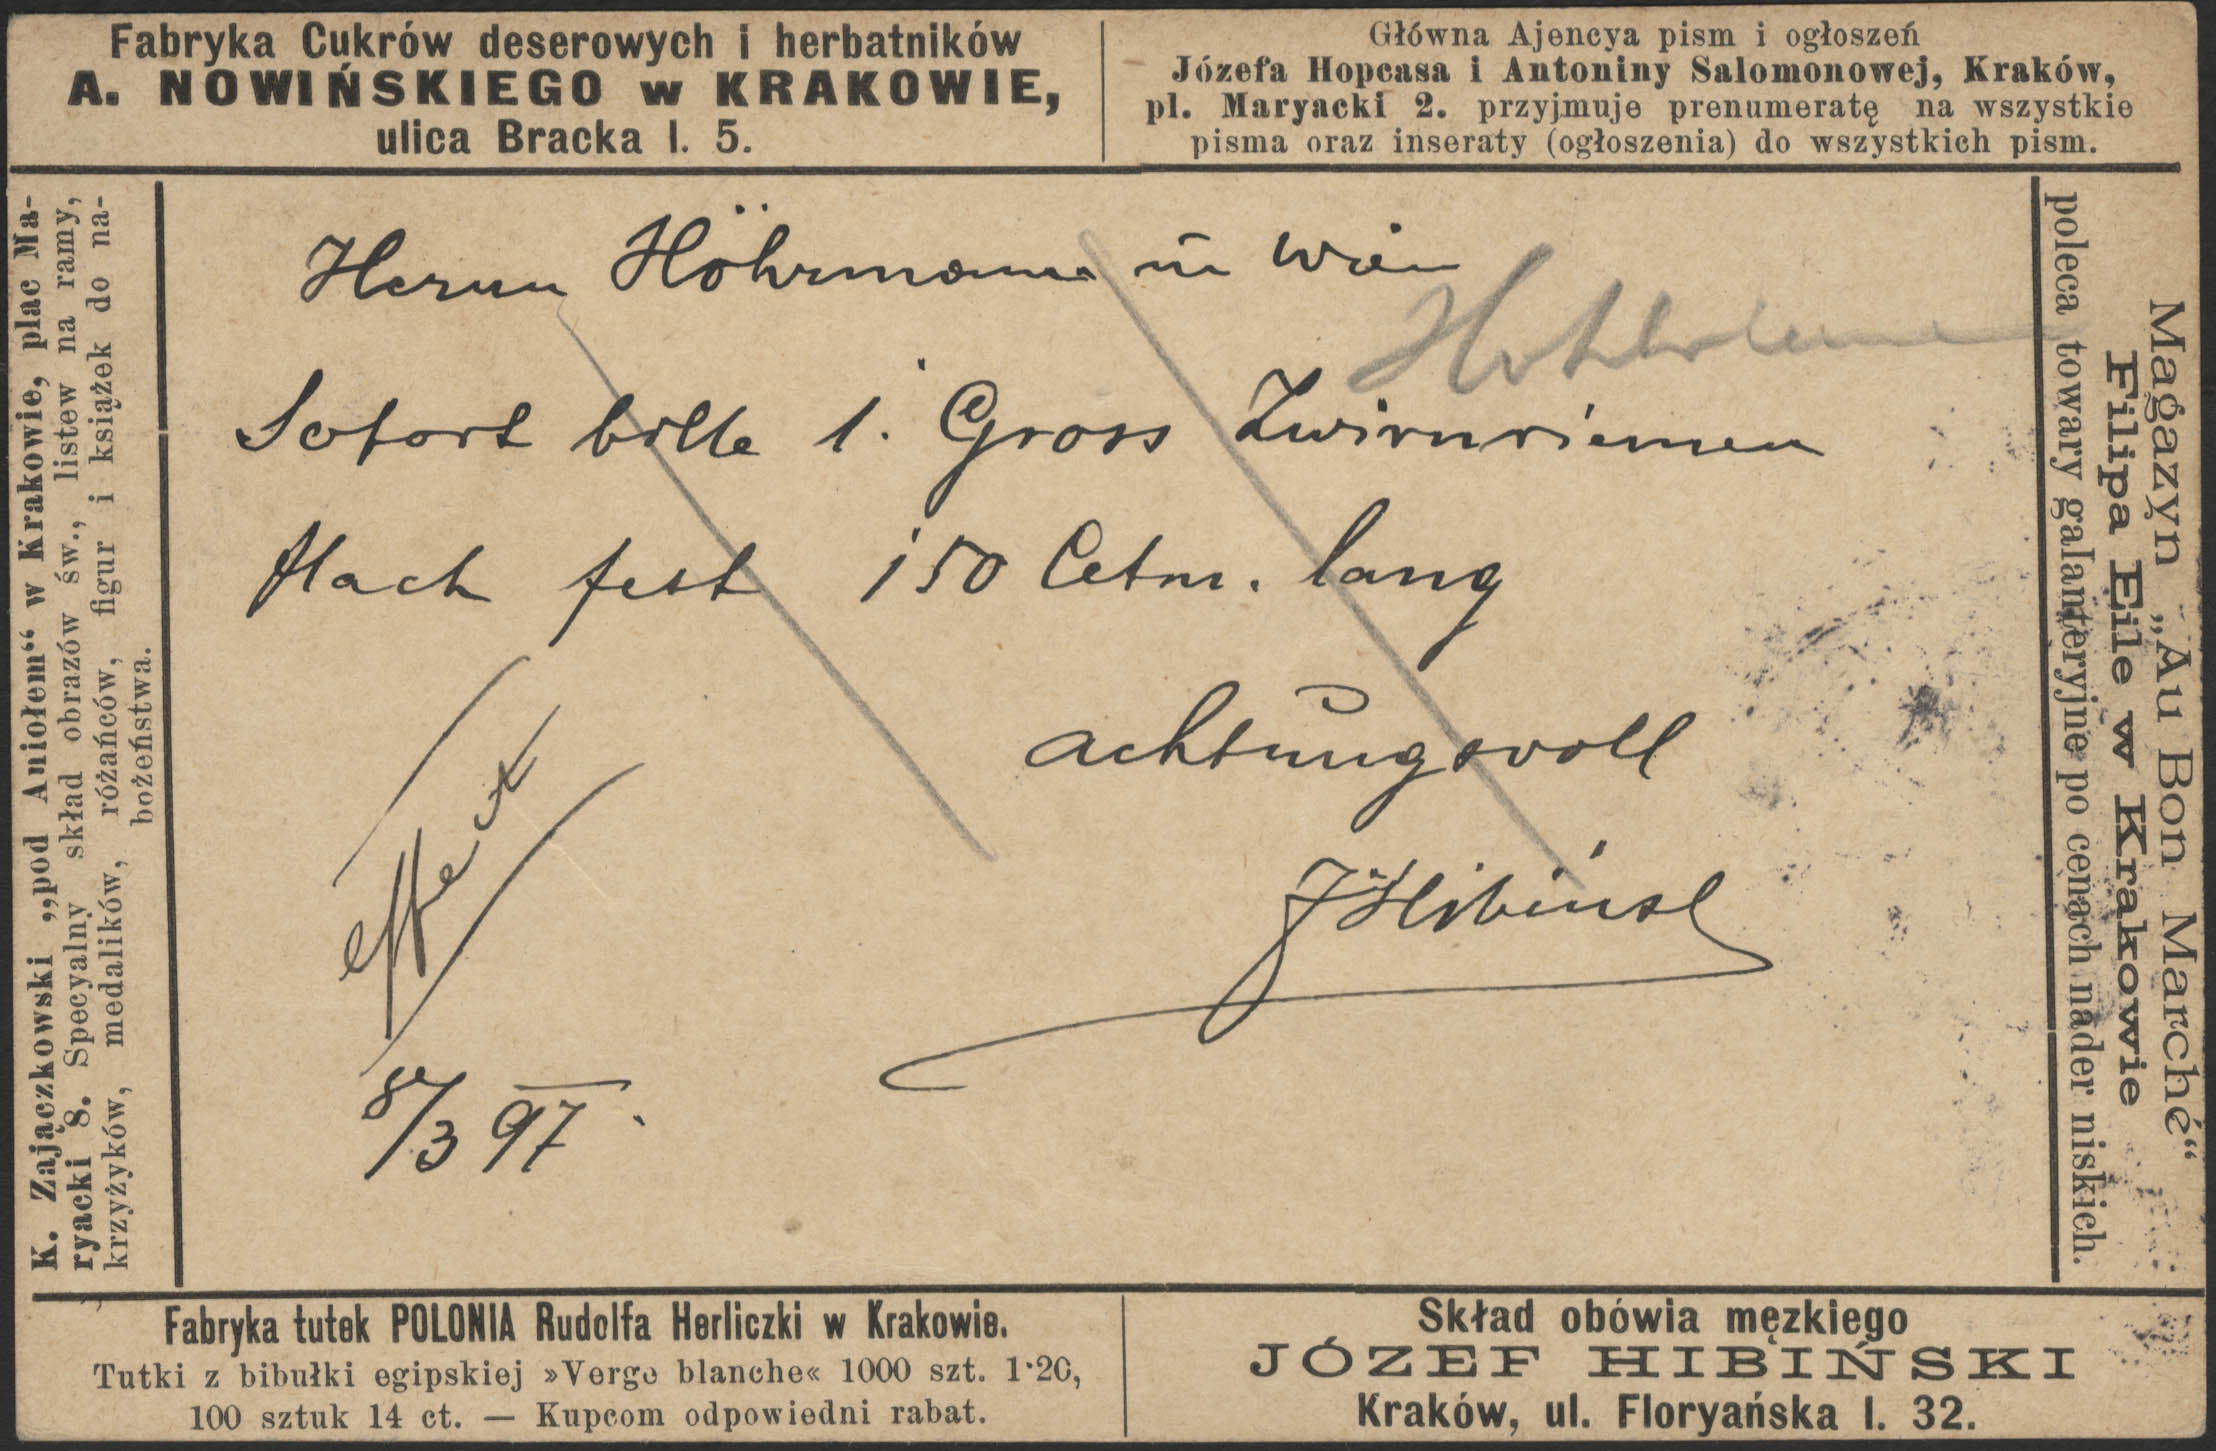 Fabryka Cukrów deserowych i herbatników
A. NOWIŃSKIEGO w KRAKOWIE,
ulica Bracka l. 5.
Główna Ajencya pism i ogłoszeń
Józefa Hopcasa i Antoniny Salomonowej, Kraków,
pl. Maryacki 2. przyjmuje prenumeratę na wszystkie
pisma oraz inseraty (ogłoszenia) do wszystkich pism.
K. Zajączkowski „pod Aniołem“ w Krakowie, plac Ma-
ryacki 8. Specyalny skład obrazów św., listew na ramy,
krzyżyków, medalików, różańców, figur i książek do na-
bożeństwa.
Herrn Höhrmann in Wien
Sofort bitte 1. Gross Zwirnriemen
flach fest 150 Cetm. lang
achtungsvoll
JHibińsk
effect
8/3 97.
Magazyn „Au Bon Marché“
Filipa Eile w Krakowie
poleca towary galanteryjne po cenach nader niskich.
Fabryka tutek POLONIA Rudolfa Herliczki w Krakowie.
Tutki z bibułki egipskiej »Verge blanche« 1000 szt. 1·20,
100 sztuk 14 ct. — Kupcom odpowiedni rabat.
Skład obówia męzkiego
JÓZEF HIBIŃSKI
Kraków, ul. Floryańska l. 32.